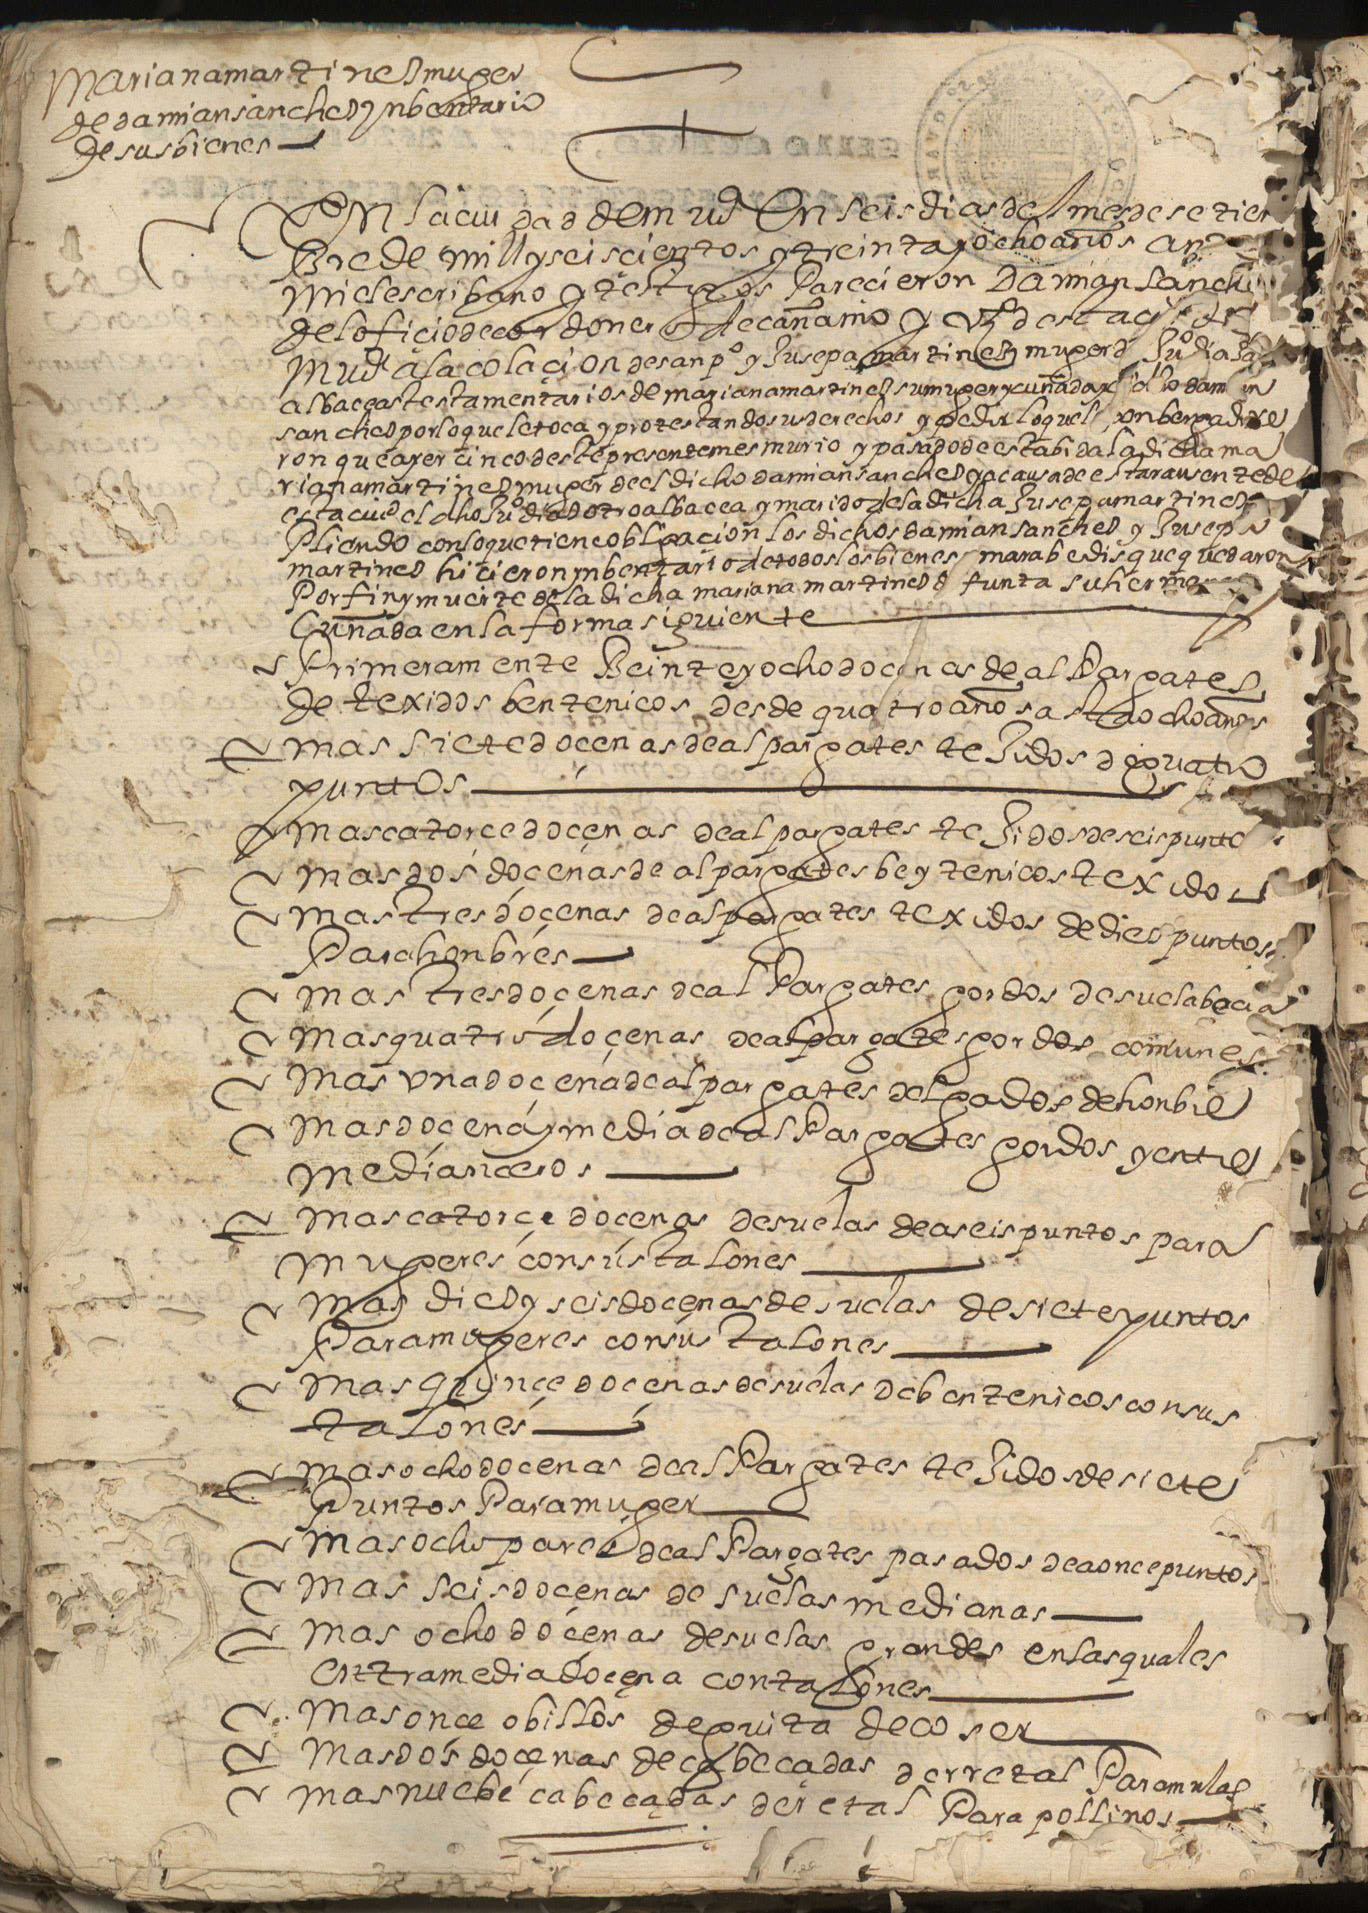 Mariana martines muger
de damian sanches ynbentario
de sus bienes
En la ciudad de mud En seis dias del mes de setien
Bre de mill y seiscientos y treinta y ocho años an
mi el escribano y testigos Parecieron Damian sanche
del oficio de cordonero de cañamo y vzº desta
Mud a la colaçion de san pº y Jusepa martines muger d Juº dias
albaçeas testamentarios de mariana martines su muger y cuñada y el dho damian
sanches por lo que le toca y protestando su derecho y pedir lo que le conbenga dixe
ron que ayer cinco deste presente mes murio y paso desta bida la dicha ma
riana martines muger del dicho damian sanches y a causa de estar ausente de
esta ciud el dho Juº dias otro albacea y marido de la dicha Jusepa martines
Pliendo con lo que tiene obligaçion los dichos damian sanches y Jusepa
martines hicieron ynbentario de todos los bienes marabedis que quedaron
Por fin y muerte de la dicha mariana martines difunta su herma
Cuñada en la forma siguiente
Primeramente Beinte y ocho docenas de alpargates
de texidos bentenicos desde quatro años asta ocho años
mas siete docenas de alpargates teJidos de quatro
puntos
mas catorce docenas de alpargates teJidos de seis punto
mas dos docenas de alpargates beytenicos texidos
mas tres docenas de alpargates texidos de dies puntos
Para honbres
mas tres docenas de alpargates gordos de suela bacia
mas quatro docenas de alpargates gordos comunes
mas vna docena de alpargates delgados de honbre
mas docena y media de alpargates gordos y entre
medianceros
mas catorce docenas de suelas de a seis puntos para
mugeres con sus talones
mas dies y seis docenas de suelas de siete puntos
Para mugeres con sus talones
mas quince docenas de suelas de bentenicos con sus
talones
mas ocho docenas de alpargates teJidos de siete
Puntos Para muger
mas ocho pares de alpargates pasados de a once puntos
mas seis docenas de suelas medianas
mas ocho docenas de suelas grandes en las quales
entra media docena con talones
mas once obillos de guita de coser
mas dos docenas de cabecadas de rretal Para mulas
mas nuebe cabecadas de retal Para pollinos